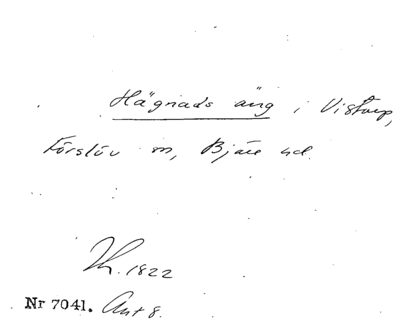 Hägnads äng i Vistorp,
Förslöv sn, Bjäre hd.
Th. 1822
Nr 7041. Ant 8.